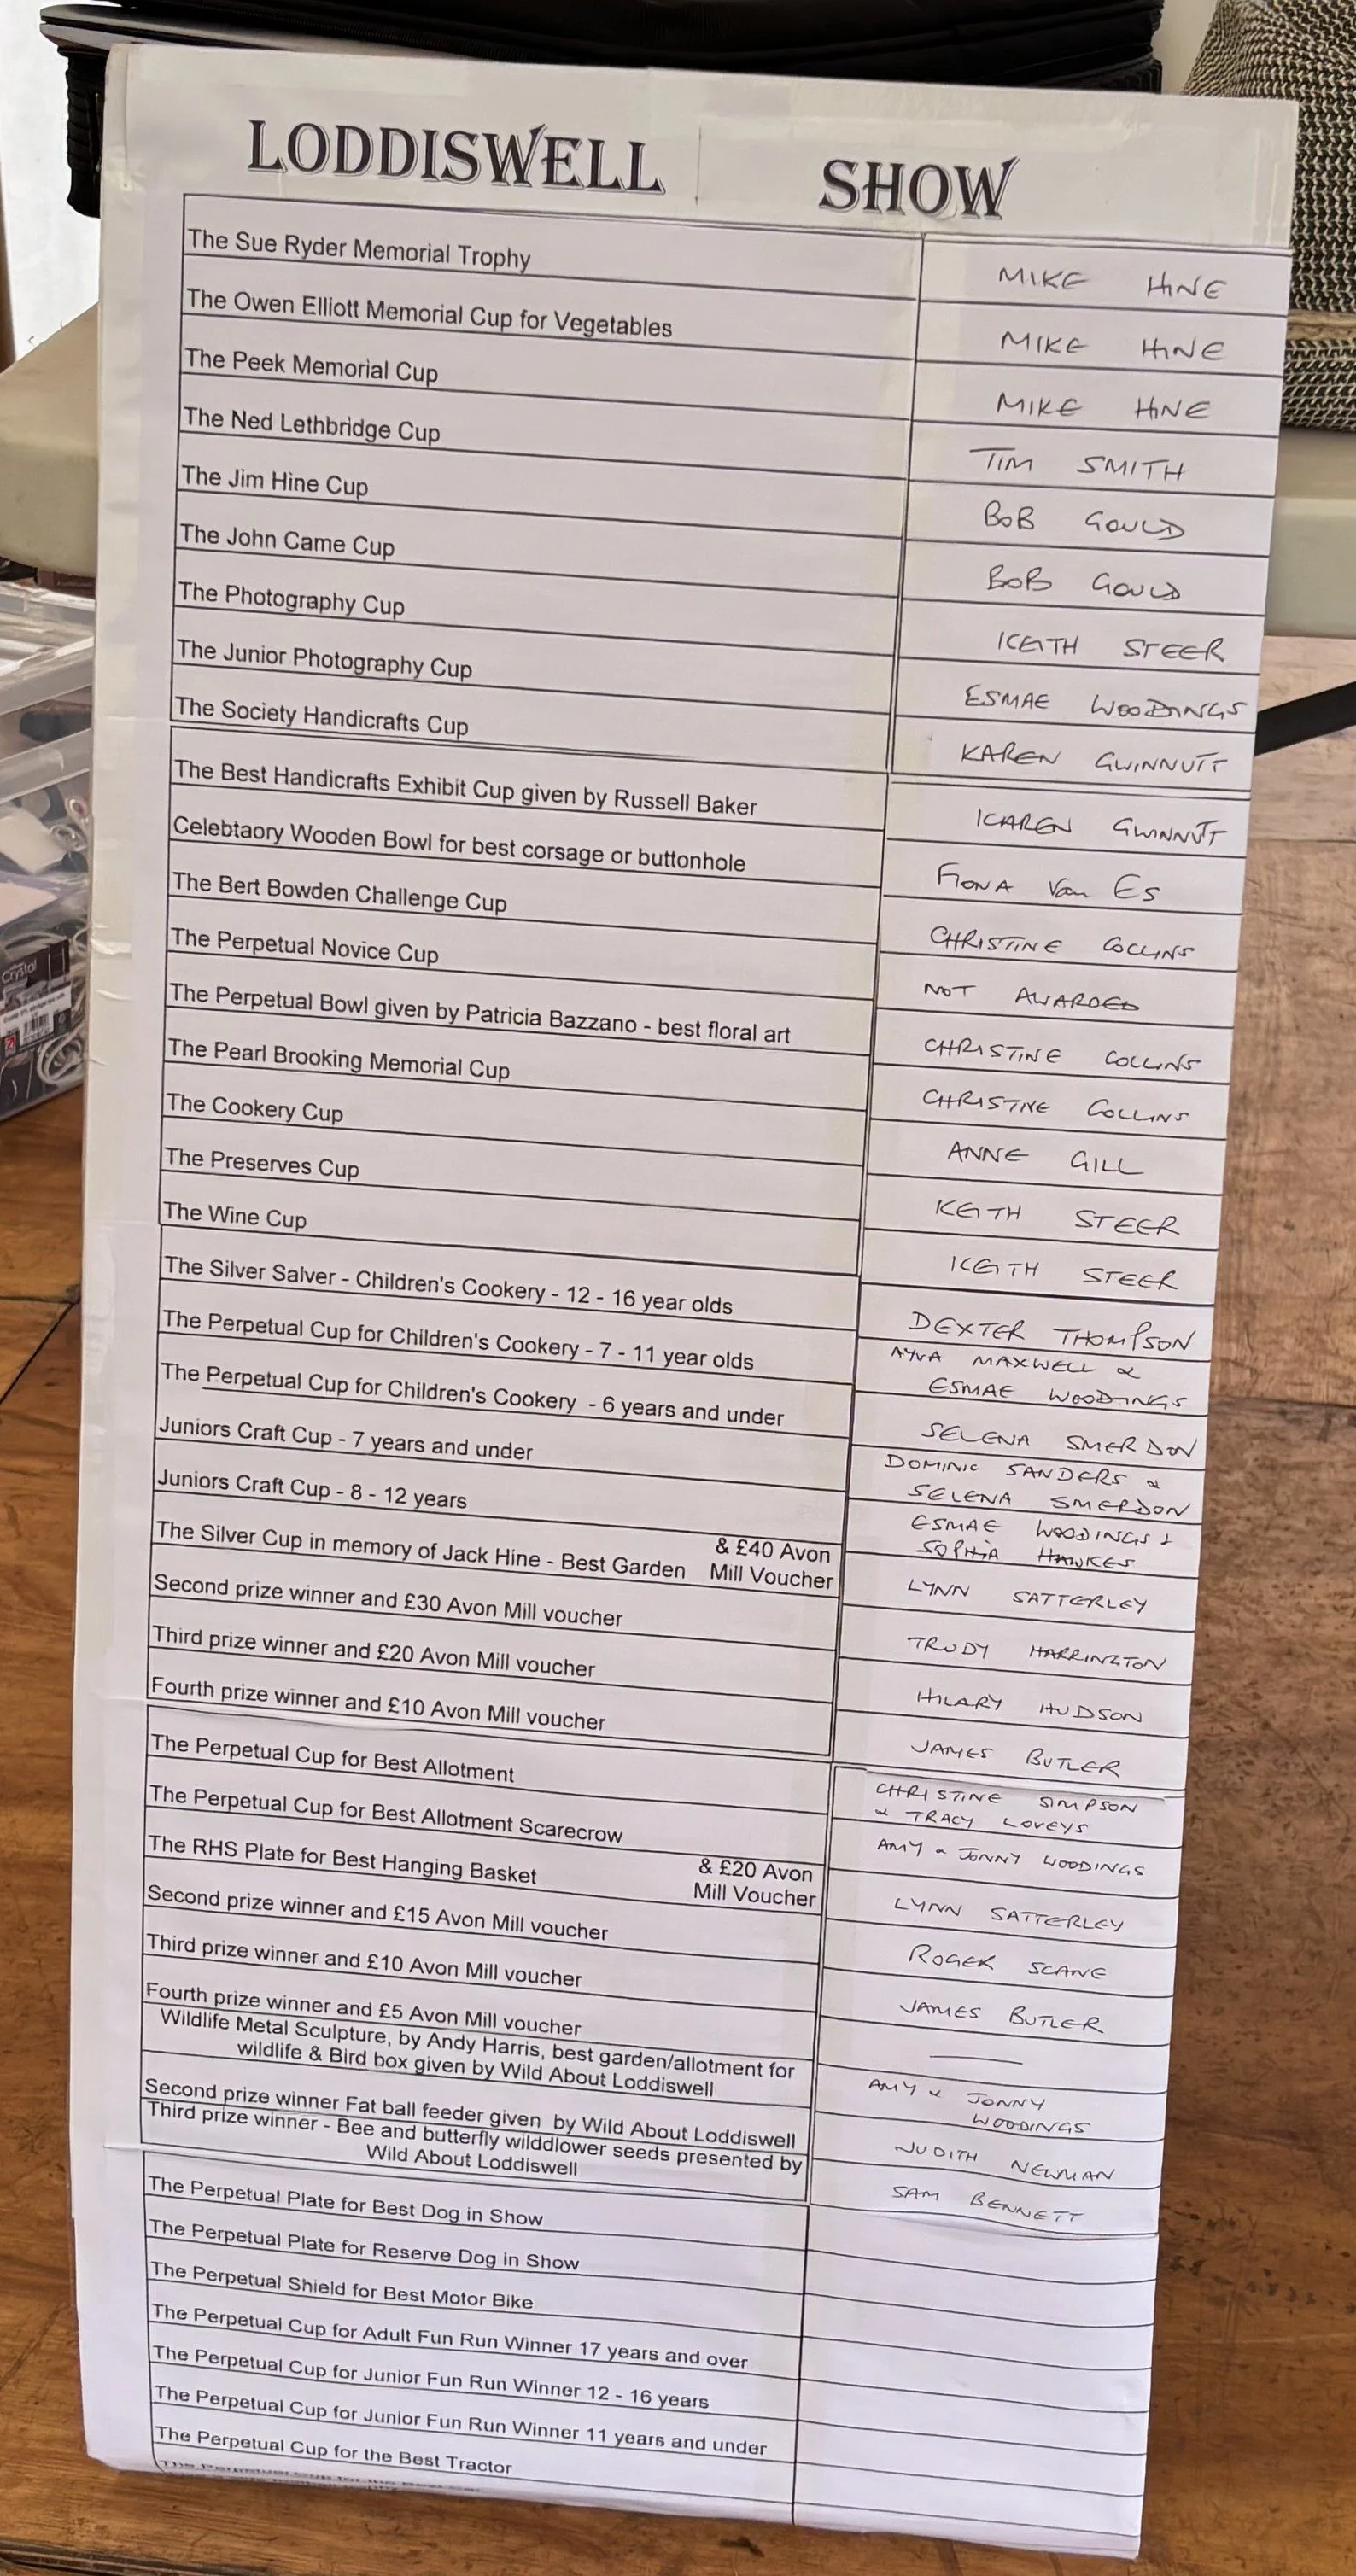 LODDISWELL SHOW
The Sue Ryder Memorial Trophy MIKE HINE
The Owen Elliott Memorial Cup for Vegetables MIKE HINE
The Peek Memorial Cup MIKE HINE
The Ned Lethbridge Cup TIM SMITH
The Jim Hine Cup BOB GOULD
The John Came Cup BOB GOULD
The Photography Cup KEITH STEER
The Junior Photography Cup ESMAE WOODINGS
The Society Handicrafts Cup KAREN GWINNUTT
The Best Handicrafts Exhibit Cup given by Russell Baker KAREN GWINNUTT
Celebtaory Wooden Bowl for best corsage or buttonhole FIONA Van ES
The Bert Bowden Challenge Cup CHRISTINE COLLINS
The Perpetual Novice Cup NOT AWARDED
The Perpetual Bowl given by Patricia Bazzano - best floral art CHRISTINE COLLINS
The Pearl Brooking Memorial Cup CHRISTINE COLLINS
The Cookery Cup ANNE GILL
The Preserves Cup KEITH STEER
The Wine Cup KEITH STEER
The Silver Salver - Children's Cookery - 12 - 16 year olds DEXTER THOMPSON
The Perpetual Cup for Children's Cookery - 7 - 11 year olds AYVA MAXWELL &
ESMAE WOODINGS
The Perpetual Cup for Children's Cookery - 6 years and under SELENA SMERDON
Juniors Craft Cup - 7 years and under DOMINIC SANDERS &
SELENA SMERDON
Juniors Craft Cup - 8 - 12 years ESMAE WOODINGS &
SOPHIA HAWKES
& £40 Avon
The Silver Cup in memory of Jack Hine - Best Garden Mill Voucher LYNN SATTERLEY
Second prize winner and £30 Avon Mill voucher TRUDY HARRINGTON
Third prize winner and £20 Avon Mill voucher HILARY HUDSON
Fourth prize winner and £10 Avon Mill voucher JAMES BUTLER
The Perpetual Cup for Best Allotment CHRISTINE SIMPSON
& TRACY LOVEYS
The Perpetual Cup for Best Allotment Scarecrow AMY & JONNY WOODINGS
& £20 Avon
The RHS Plate for Best Hanging Basket Mill Voucher LYNN SATTERLEY
Second prize winner and £15 Avon Mill voucher ROGER SCANE
Third prize winner and £10 Avon Mill voucher JAMES BUTLER
Fourth prize winner and £5 Avon Mill voucher —
Wildlife Metal Sculpture, by Andy Harris, best garden/allotment for AMY & JONNY
wildlife & Bird box given by Wild About Loddiswell WOODINGS
Second prize winner Fat ball feeder given by Wild About Loddiswell JUDITH NEWMAN
Third prize winner - Bee and butterfly wilddlower seeds presented by SAM BENNETT
Wild About Loddiswell
The Perpetual Plate for Best Dog in Show
The Perpetual Plate for Reserve Dog in Show
The Perpetual Shield for Best Motor Bike
The Perpetual Cup for Adult Fun Run Winner 17 years and over
The Perpetual Cup for Junior Fun Run Winner 12 - 16 years
The Perpetual Cup for Junior Fun Run Winner 11 years and under
The Perpetual Cup for the Best Tractor
Crystal